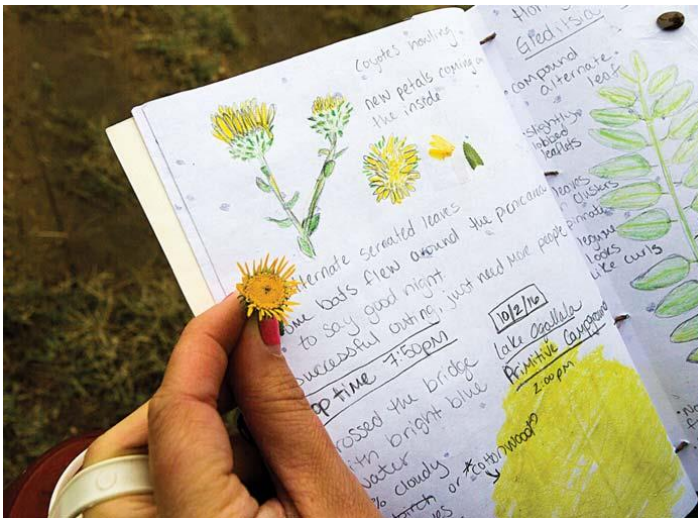 coyotes howling
new petals coming in
the inside
alternate serrated leaves
bats flew around the picnic area
to say good night
successful outing, just need more people
stop time 7:50pm
crossed the bridge
with bright blue
water
% cloudy
birch or *cottonwood?
10/2/16
Lake Ogallala
Primitive Campground
2:00pm
Gleditsia
compound
alternate
leaf
slightly
lobbed
leaflets
leaves
in clusters
pinnate
legume
looks
like curls